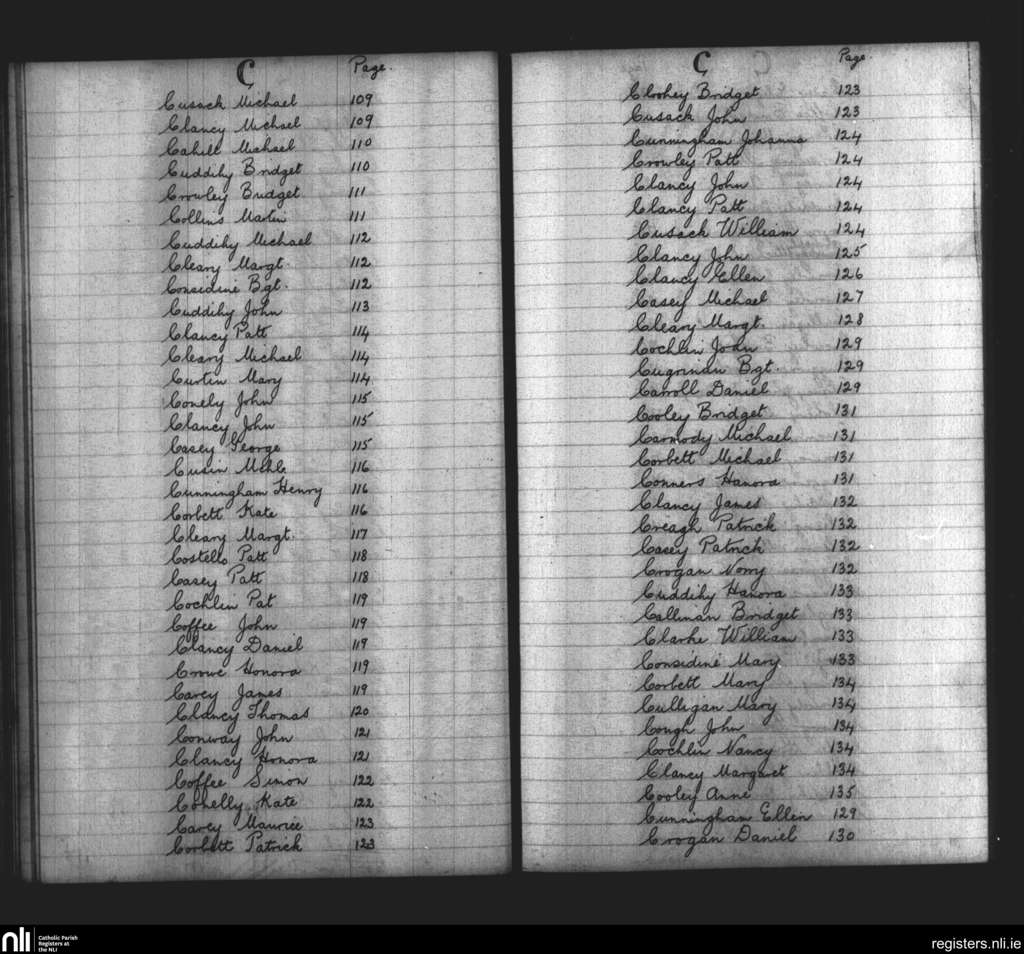 C Page.
Cusack Michael 109
Clancy Michael 109
Cahill Michael 110
Cuddihy Bridget 110
Crowley Bridget 111
Collins Martin 111
Cuddihy Michael 112
Cleary Margt. 112
Considine Bgt. 112
Cuddihy John 113
Clancy Patt 114
Cleary Michael 114
Curtin Mary 114
Conely John 115
Clancy John 115
Casey George 115
Cusin 116
Cunningham Henry 116
Corbett Kate 116
Cleary Margt. 117
Costello Patt 118
Casey Patt 118
Cochlin Pat 119
Coffee John 119
Clancy Daniel 119
Crowe Honora 119
Carey James 119
Clancy Thomas 120
Conway John 121
Clancy Honora 121
Coffee Simon 122
Conelly Kate 122
Carey Maurice 123
Corbett Patrick 123
C Page.
Cloohey Bridget 123
Cusack John 123
Cunningham Johanna 124
Crowley Patt 124
Clancy John 124
Clancy Patt 124
Cusack William 124
Clancy John 125
Clancy Ellen 126
Casey Michael 127
Cleary Margt. 128
Cochlin John 129
Bgt. 129
Carroll Daniel 129
Cooley Bridget 131
Carmody Michael 131
Corbett Michael 131
Conners Hanora 131
Clancy James 132
Creagh Patrick 132
Casey Patrick 132
Crogan Norry 132
Cuddihy Hanora 133
Callinan Bridget 133
Clarke William 133
Considine Mary 133
Corbett Mary 134
Culligan Mary 134
Cough John 134
Cochlin Nancy 134
Clancy Margaret 134
Cooley Anne 135
Cunningham Ellen 129
Crogan Daniel 130
nli Catholic Parish
Registers at
the NLI
registers.nli.ie